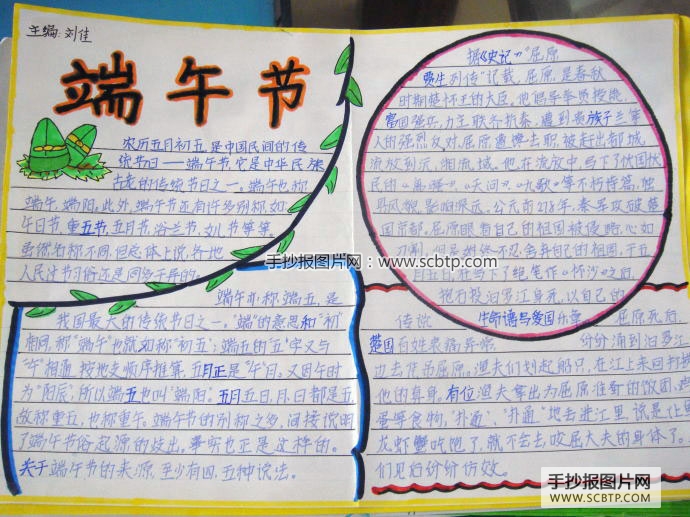 主编:刘佳
端午节
农历五月初五,是中国民间的传
统节日——端午节,它是中华民族
古老的传统节日之一。端午也称
端午,端阳。此外,端午节还有许多别称,如
午日节、重五节,五月节,浴兰节,女儿节等等。
虽然名称不同,但总体上说,各地
人民过节习俗还是同多于异的。
端午亦称端五,是
我国最大的传统节日之一。"端"的意思和"初"
相同,称"端午"也就如称"初五";端五的"五"字又与
"午"相通,按地支顺序推算,五月正是"午"月。又因午时
为"阳辰",所以端五也叫"端阳"。五月五日,月、日都是五,
故称重五,也称重午。端午节的别称之多,间接说明
了端午节俗起源的歧出。事实也正是这样的。
关于端午节的来源,至少有四、五种说法。
据《史记》"屈原
贾生列传"记载,屈原,是春秋
时期楚怀王的大臣。他倡导举贤授能,
富国强兵,力主联齐抗秦,遭到贵族子兰等
人的强烈反对,屈原遭谗去职,被赶出都城,
流放到沅、湘流域。他在流放中,写下了忧国忧
民的《离骚》、《天问》、《九歌》等不朽诗篇,独
具风貌,影响深远。公元前278年,秦军攻破楚
国京都。屈原眼看自己的祖国被侵略,心如
刀割,但是始终不忍舍弃自己的祖国,于五
月五日,在写下了绝笔作《怀沙》之后,
抱石投汨罗江身死,以自己的
生命谱写爱国乐章
传说 屈原死后,
楚国百姓哀痛异常 纷纷涌到汨罗江
边去凭吊屈原。渔夫们划起船只,在江上来回打捞
他的真身。有位渔夫拿出为屈原准备的饭团、鸡
蛋等食物,"扑通、扑通"地丢进江里,说是让鱼
龙虾蟹吃饱了,就不会去咬屈大夫的身体了。人
们见后纷纷仿效。
手抄报图片网:www.scbtp.com
手抄报图片网
WWW.SCBTP.COM